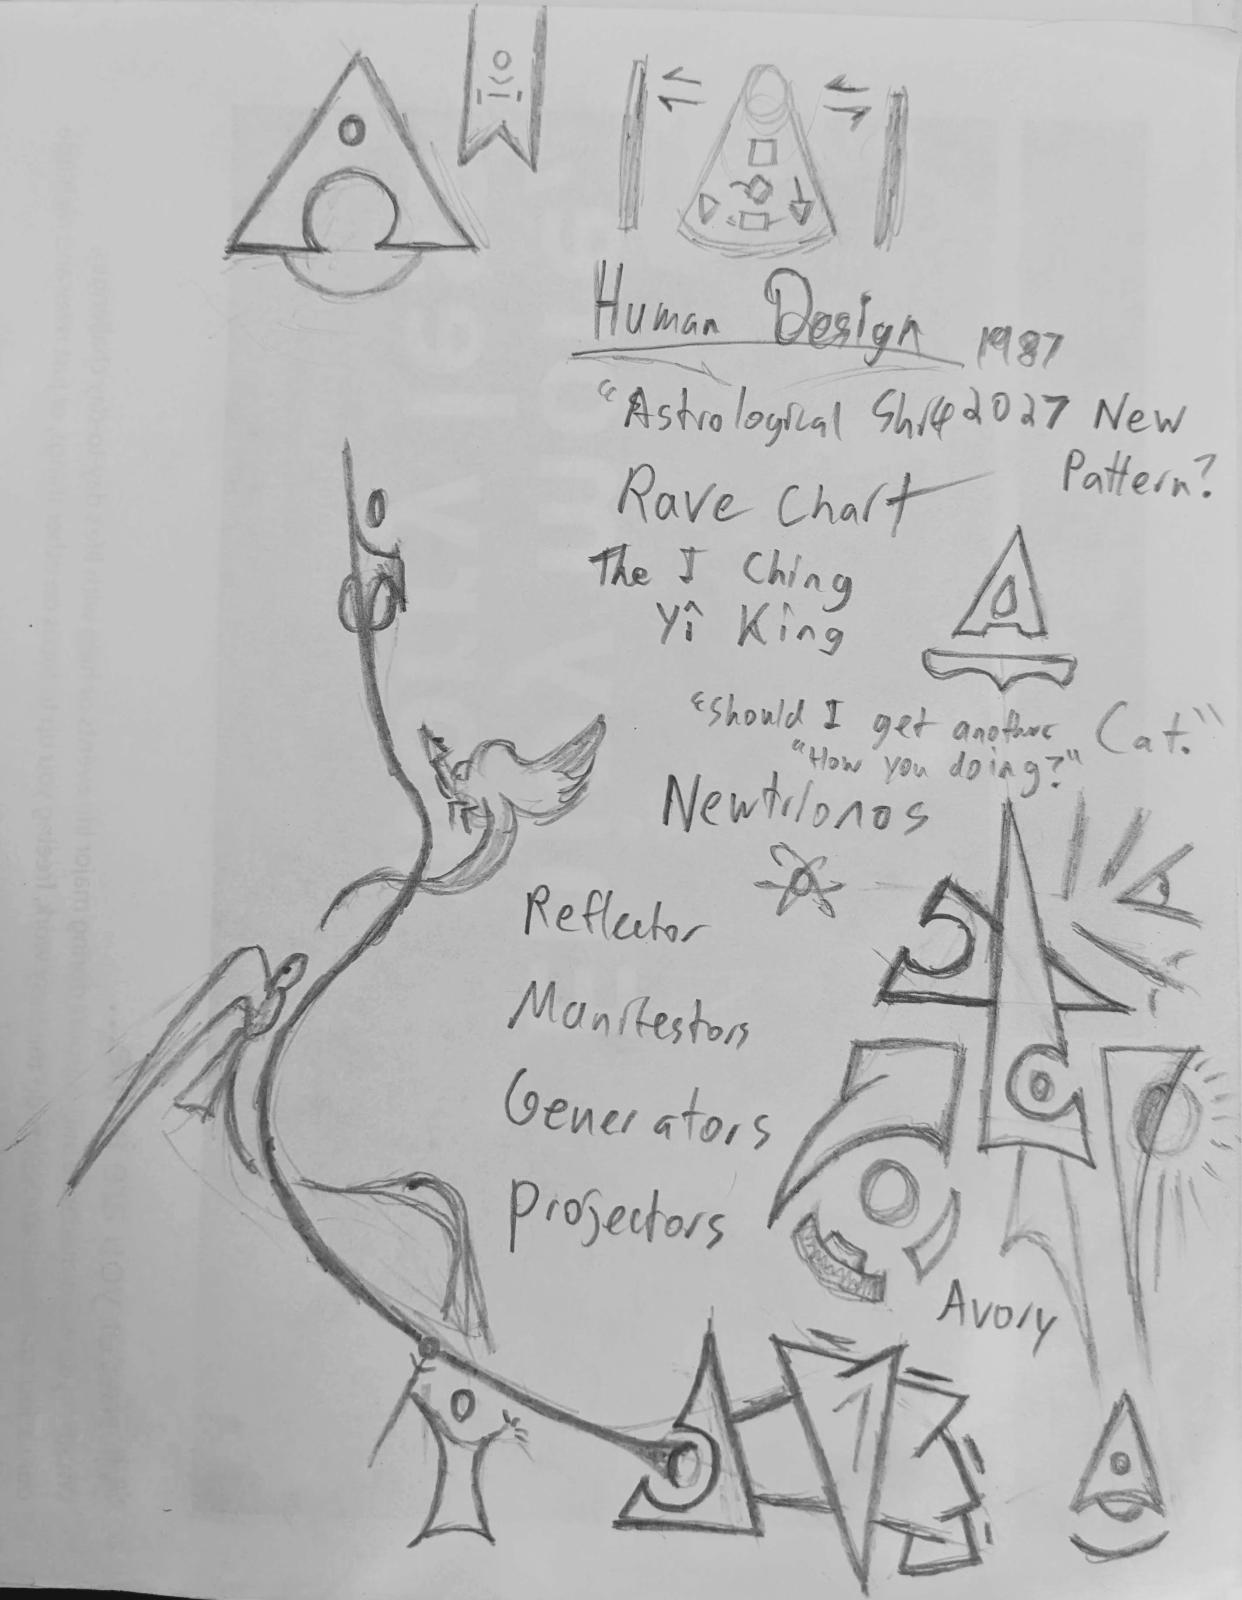 Human Design 1987
"Astrological Shift 2027 New
Pattern?
Rave Chart
The I Ching
Yî King
"Should I get another Cat."
"How you doing?"
Newtrionos
Reflector
Manifestors
Generators
Projectors
Avory